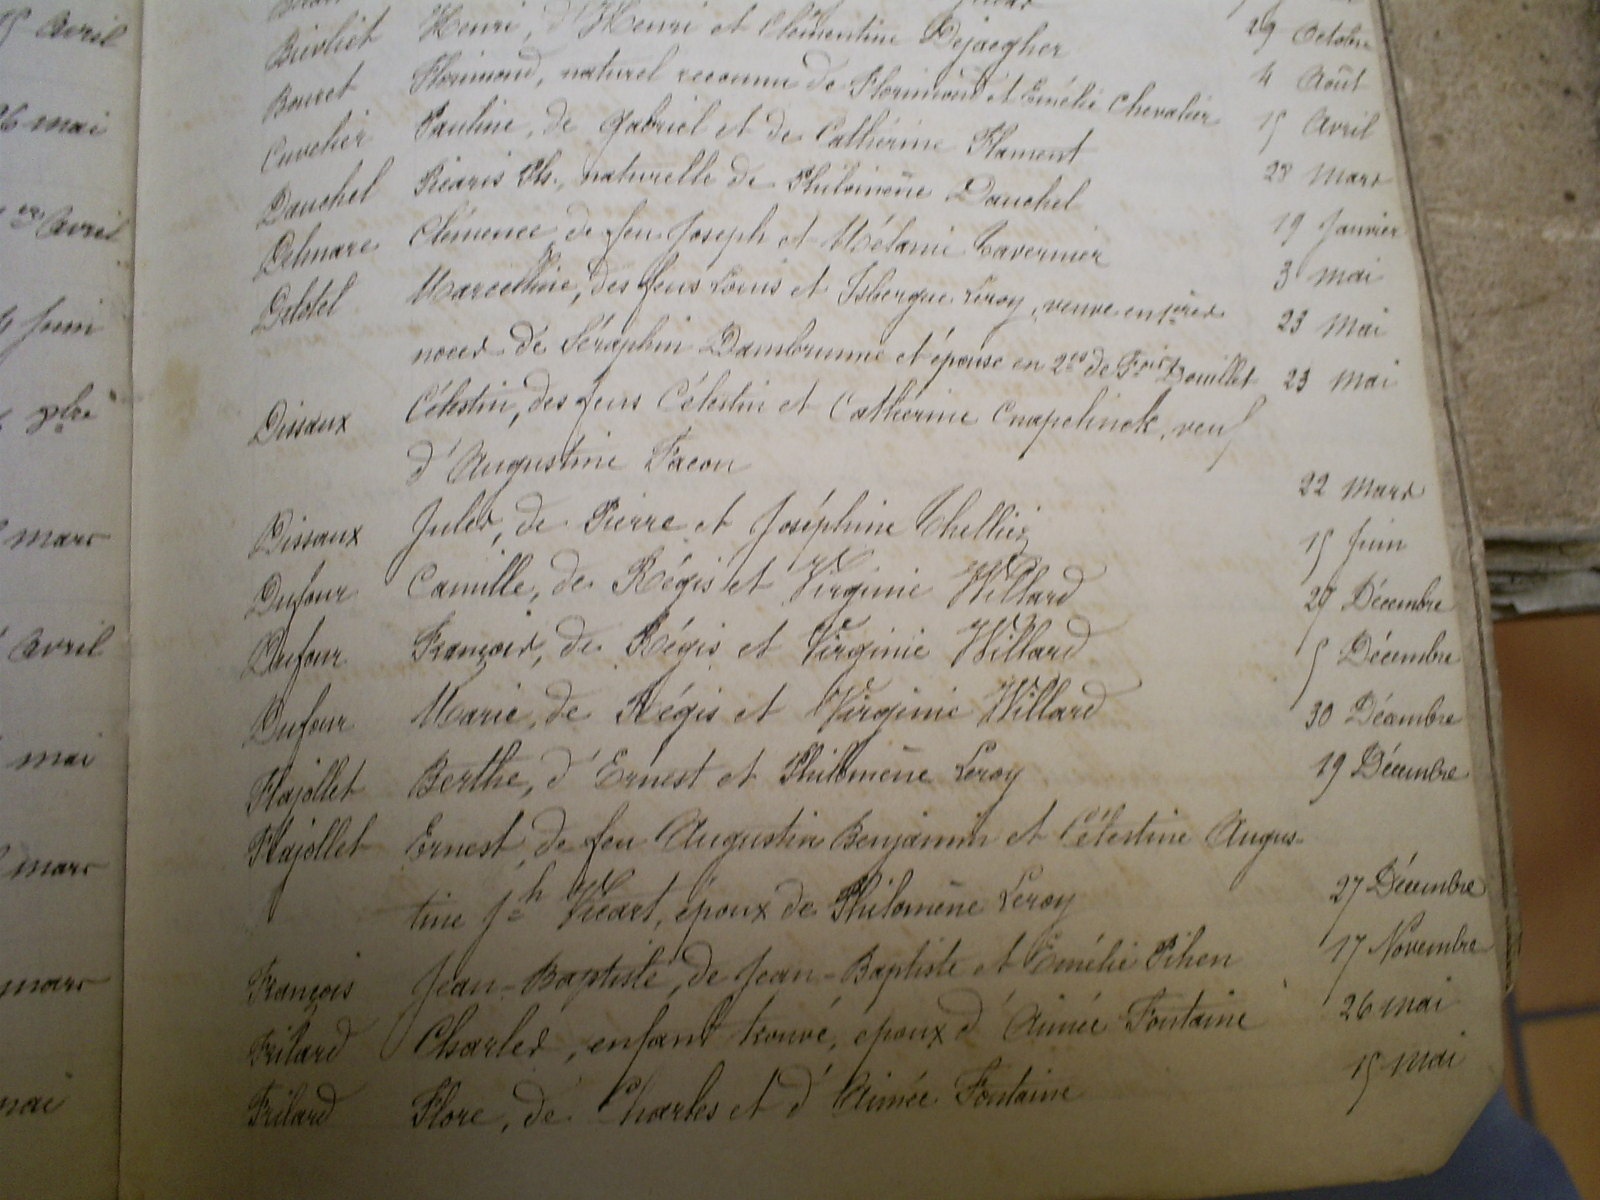 15 avril
26 mai
1er avril
juin
7bre
mars
avril
mai
mars
mars
mai
Biervliet Henri, d'Henri et Clémentine Dejaegher 29 Octobre
Bouret Florimond, naturel reconnu de Florimond et Emélie Chevalier 4 Août
Cuvelier Pauline, de Gabriel et de Cathérine Flament 15 Avril
Dauchel Ph., naturelle de Philomène Dauchel 28 Mars
Delmare Clémence de feu Joseph et Mélanie Tavernier 19 Janvier
Delotel Marcelline, des feus Louis et Isbergue Leroy, veuve en 1ères 3 Mai
noces de Séraphin Dambrunne et épouse en 2es de Fois Douillet 23 Mai
Dissaux Célestin, des feus Célestin et Cathérine Cnapelinck, veuf 23 Mai
d'Augustine Facon
Dissaux Jules, de Pierre et Joséphine Thelliez 22 Mars
Dufour Camille, de Régis et Virginie Willard 15 Juin
Dufour François, de Régis et Virginie Willard 29 Décembre
Dufour Marie, de Régis et Virginie Willard 5 Décembre
Flajollet Berthe, d'Ernest et Philomène Leroy 30 Décembre
Flajollet Ernest, de feu Augustin Benjamin et Célestine Augus- 19 Décembre
tine Jh Vicart, époux de Philomène Leroy 27 Décembre
François Jean-Baptiste, de Jean-Baptiste et Emélie Pihen 17 Novembre
Frilard Charles, enfant trouvé, époux d'Aimée Fontaine 26 Mai
Frilard Flore, de Charles et d'Aimée Fontaine 15 Mai